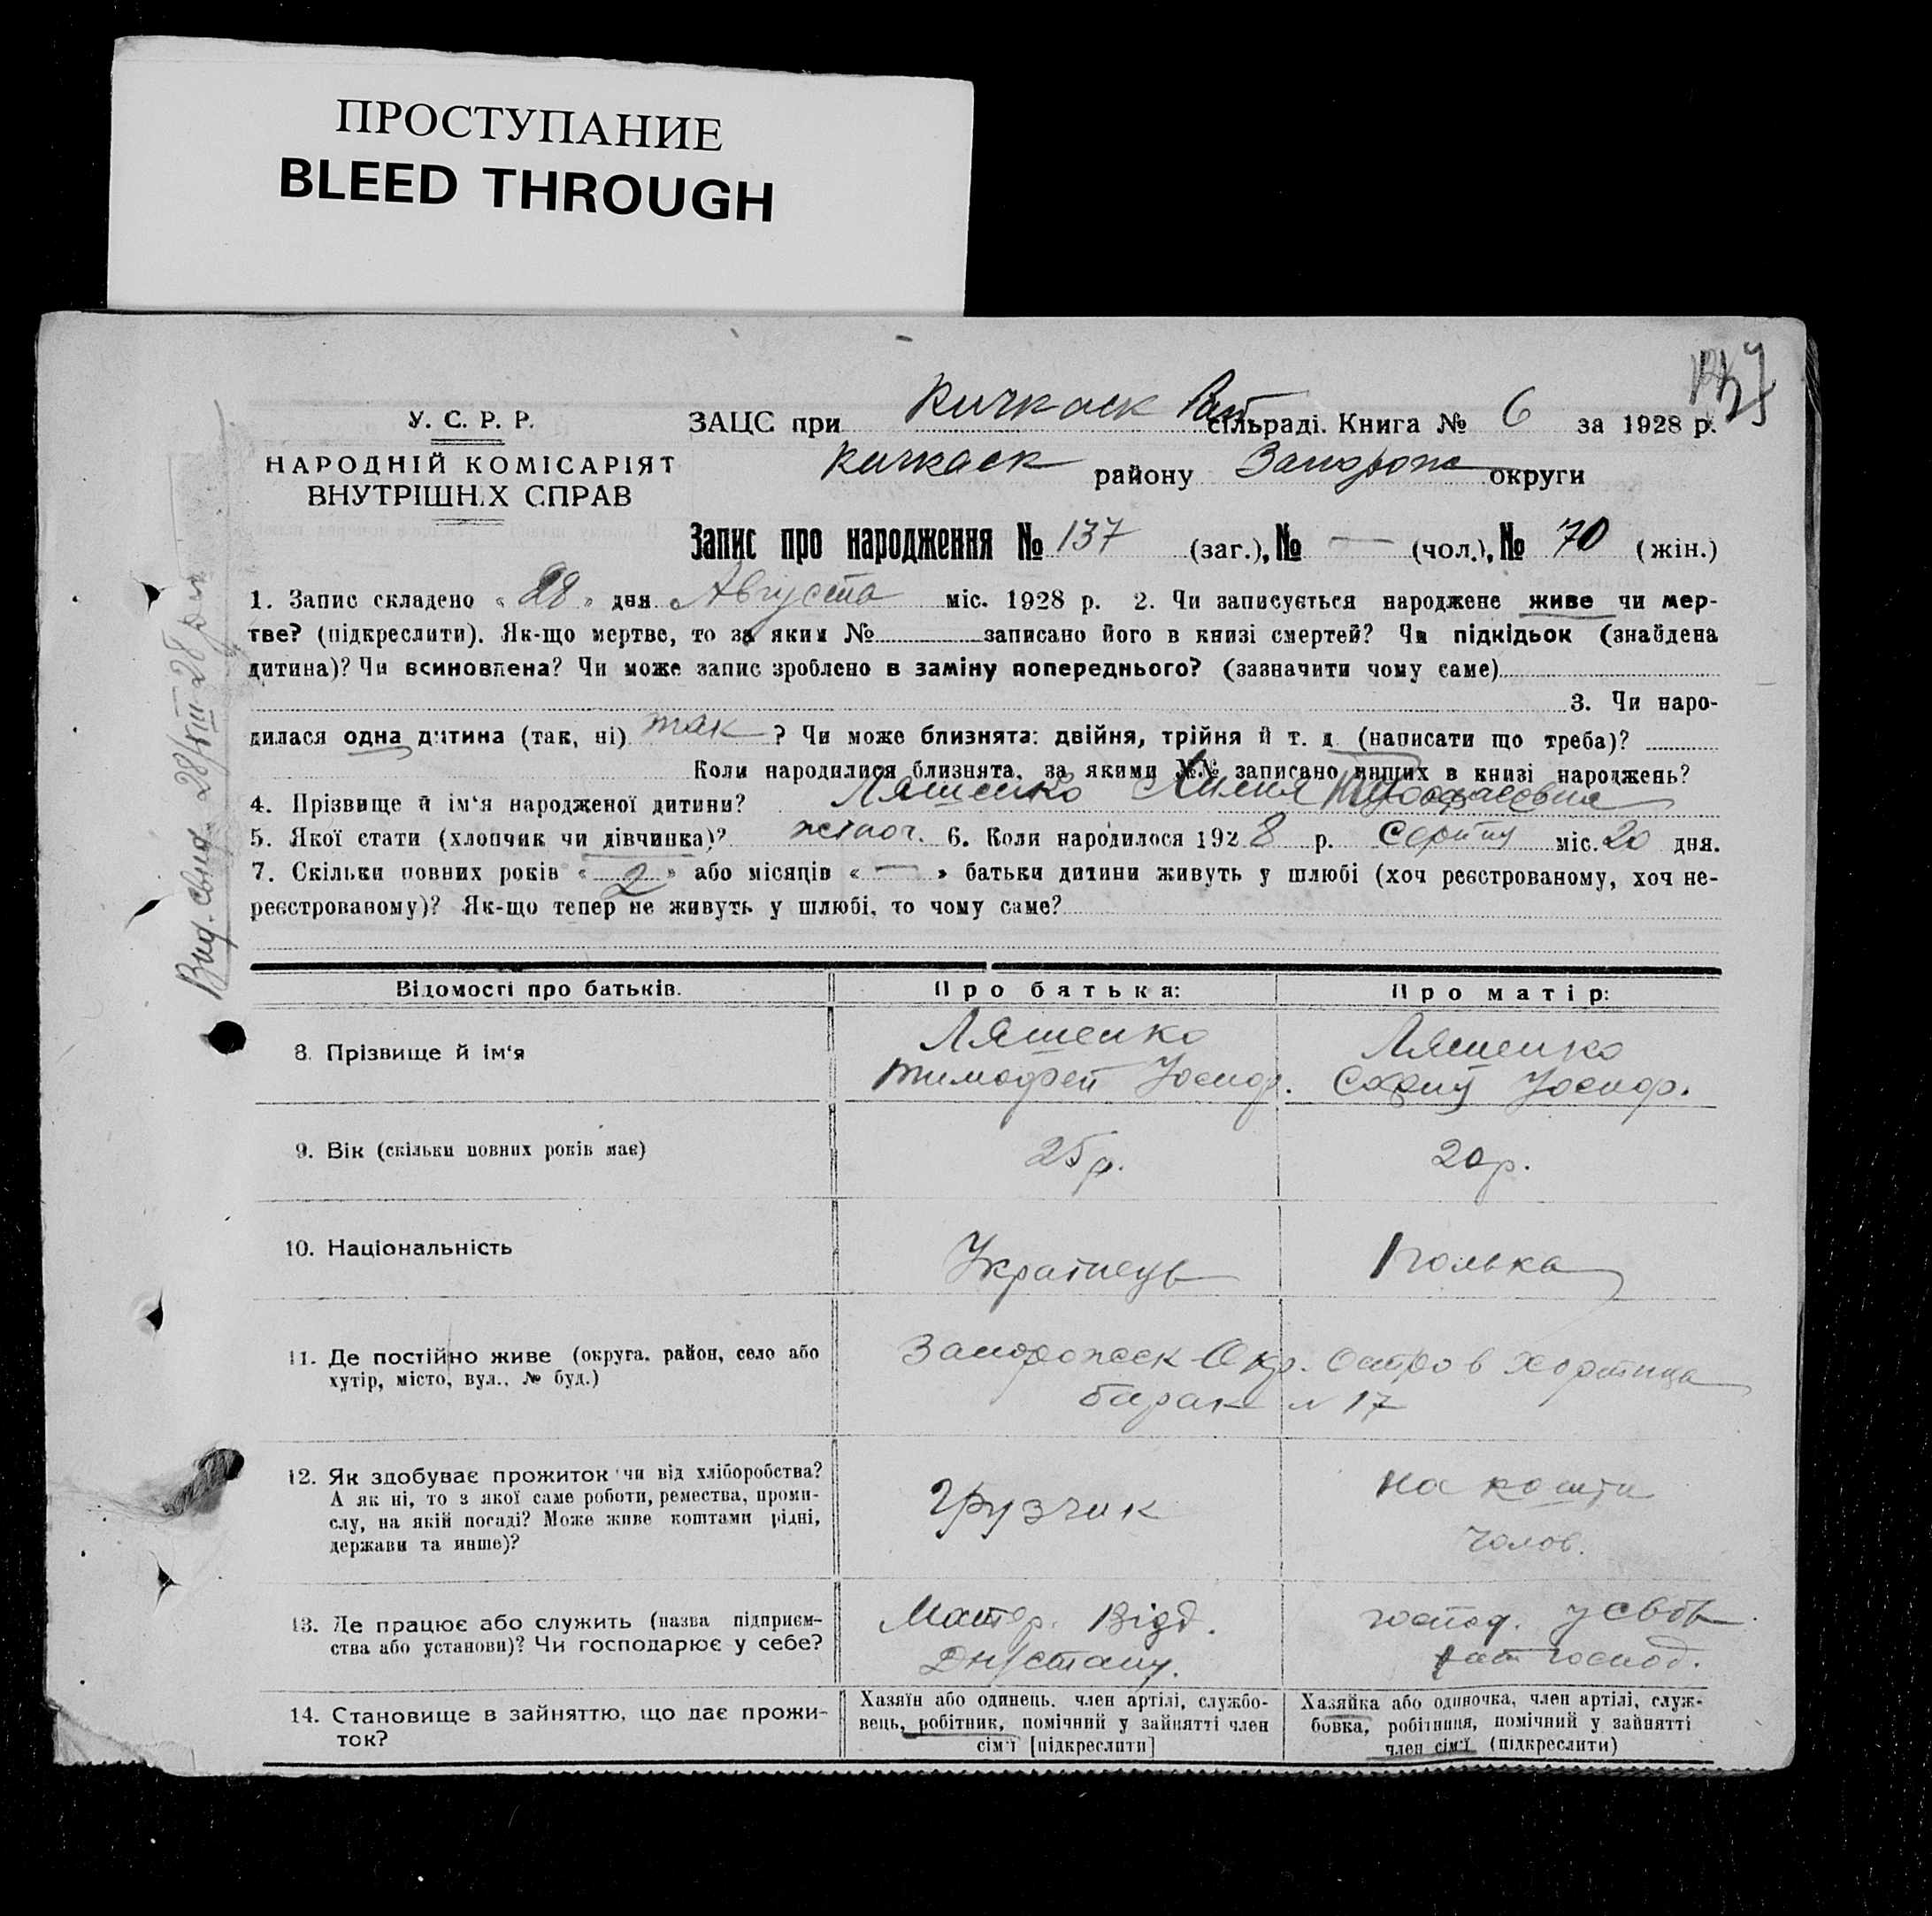 ПРОСТУПАНИЕ
BLEED THROUGH
У. С. Р. Р.
НАРОДНІЙ КОМІСАРІЯТ
ВНУТРІШНІХ СПРАВ
ЗАЦС при Кичкаск Рай сільраді. Книга № 6 за 1928 р.
Кичкаск району Запорож округи
Запис про народження № 137 (заг.), № — (чол.), № 70 (жін.)
1. Запис складено « 28 » дня Августа міс. 1928 р. 2. Чи записується народжене живе чи мер-
тве? (підкреслити). Як-що мертве, то за яким № записано його в книзі смертей? Чи підкідьок (знайдена
дитина)? Чи всиновлена? Чи може запис зроблено в заміну попереднього? (зазначити чому саме)
3. Чи наро-
дилася одна дитина (так, ні) так ? Чи може близнята: двійня, трійня й т. д. (написати що треба)?
Коли народилися близнята, за якими №№ записано инших в книзі народжень?
4. Прізвище й ім'я народженої дитини? Ляшенко
5. Якої стати (хлопчик чи дівчинка)? жіноч. 6. Коли народилося 1928 р. Серпня міс. 20 дня.
7. Скільки повних років « 2 » або місяців « — » батьки дитини живуть у шлюбі (хоч реєстрованому, хоч не-
реєстрованому)? Як-що тепер не живуть у шлюбі, то чому саме?
Вид. свид. 28/VIII-28
Відомості про батьків. Про батька: Про матір:
8. Прізвище й ім'я
Ляшенко
Тимофей Йосиф.
Ляшенко
София Йосиф.
9. Вік (скільки повних років має) 25 р. 20 р.
10. Національність Українець Полька
11. Де постійно живе (округа, район, село або
хутір, місто, вул., № буд.)
Запорожск Окр. Остров Хортица
барак № 17
12. Як здобуває прожиток чи від хліборобства?
А як ні, то з якої саме роботи, ремества, проми-
слу, на якій посаді? Може живе коштами рідні,
держави та инше)?
Грузчик
на кошти
чолов.
13. Де працює або служить (назва підприєм-
ства або установи)? Чи господарює у себе?
Матер. Відд.
господ. у
господ.
14. Становище в зайняттю, що дає прожи-
ток?
Хазяїн або одинець, член артілі, службо-
вець, робітник, помічний у зайнятті член
сім'ї [підкреслити]
Хазяйка або одиночка, член артілі, служ-
бовка, робітниця, помічний у зайнятті
член сім'ї (підкреслити)